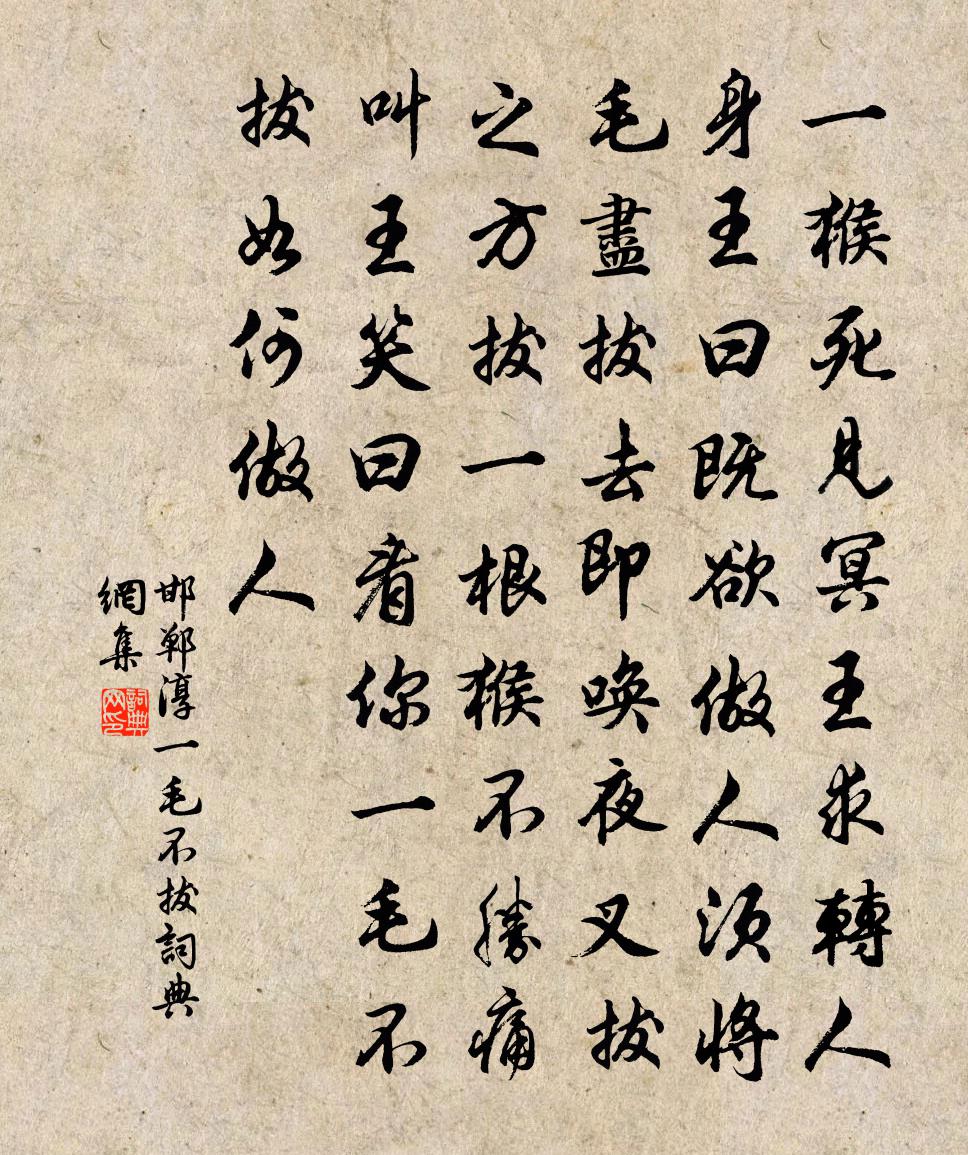 一猴死見冥王求轉人
身王曰既欲做人須將
毛盡拔去即喚夜叉拔
之方拔一根猴不勝痛
叫王笑曰看你一毛不
拔如何做人
邯鄲淳一毛不拔詞典
網集
詞典
网印